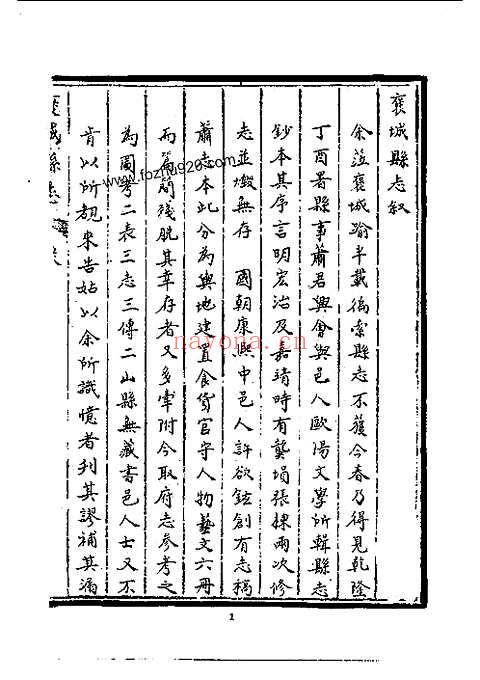 褒城縣志叙
余莅褒城踰半載徧索縣志不獲今春乃得見乾隆
丁酉署縣事蕭君興會與邑人歐陽文學所輯縣志
鈔本其序言明宏治及嘉靖時有龔塤張棟兩次修
志並燬無存 國朝康熙中邑人許欲鉉創有志稿
蕭志本此分為輿地建置食貨官守人物藝文六冊
而篇簡殘脱其幸存者又多牽附今取府志參考之
為圖考二表三志三傳二山縣無藏書邑人士又不
肯以所覩來告姑以余所識憶者刊其謬補其漏
褒城縣志
1
www.fozhu920.com
nayona.cn